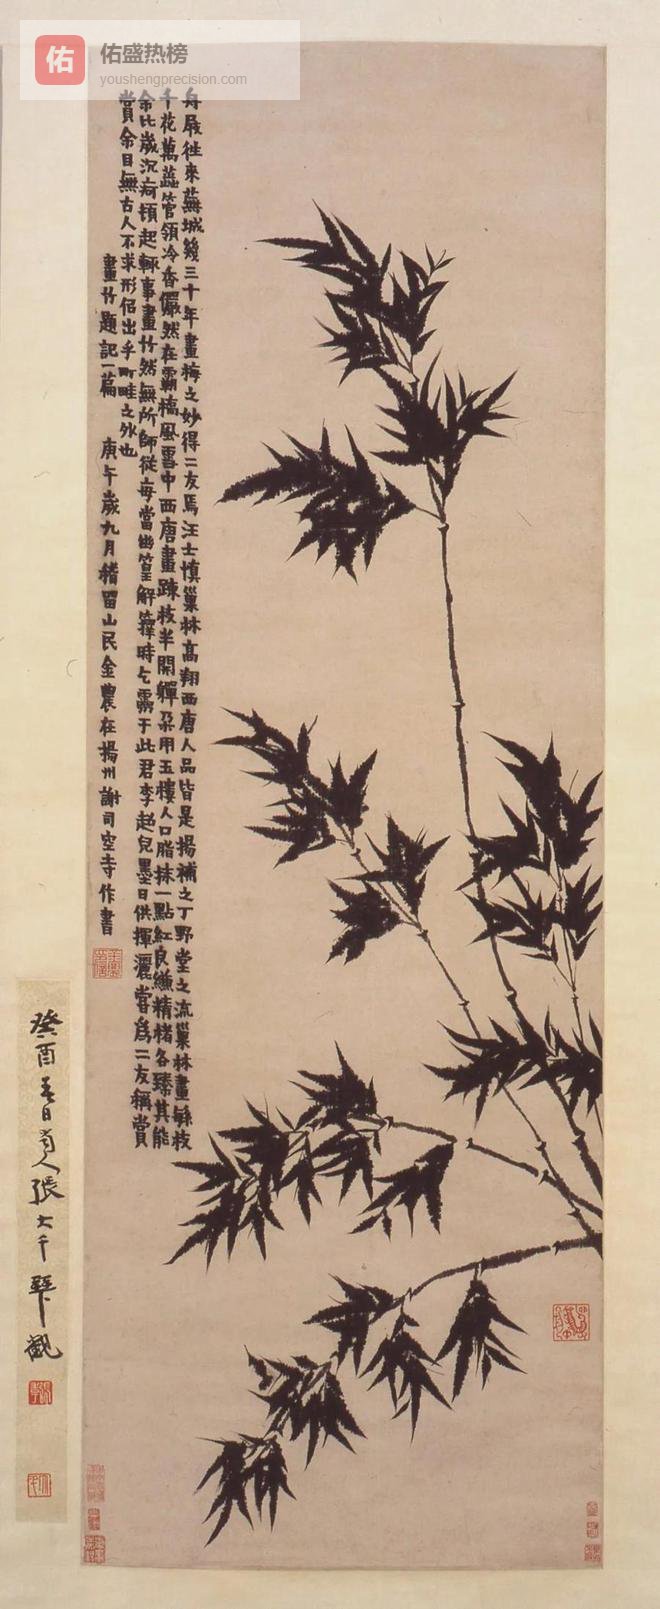 佑
佑盛热榜
youshengprecision.com
舟屐往來蕪城幾三十年畫梅之妙得二友焉汪士慎巢林高翔西唐人品皆是揚補之丁野堂之流巢林畫繇枝
千花萬蕊管領冷香儼然在霸橋風雪中西唐畫疎枝半開嚲朵用玉樓人口脂抹一點紅良縑精楮各臻其能
余比歲沉疴頓起輒事畫竹然無所師從每當幽篁解籜時乞靈于此君李超兒墨日供揮灑嘗爲二友稱賞
賞余目無古人不求形佀出乎町畦之外也
畫竹題記一篇 庚午歲九月稽留山民金農在揚州謝司空寺作書
癸酉春日蜀人張大千拜觀